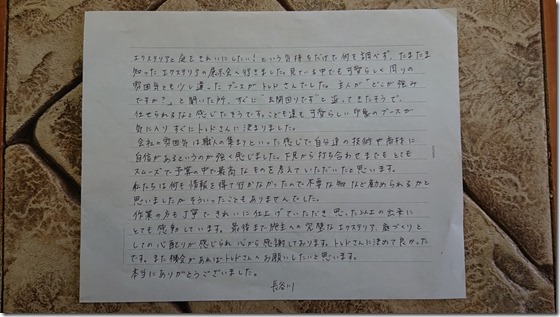 エクステリアと庭をきれいにしたい！という気持ちだけで何を調べず、たまたま
知ったエクステリアの展示会へ行きました。見ている中でも可愛らしく周りの
雰囲気とも少し違ったブースがトレドさんでした。主人が"どこが強み
ですか？"と聞いた所、すぐに"玄関回りです"と返ってきたそうで、
任せられるなと感じたそうです。こども達も可愛らしい印象のブースが
気に入りすぐにトレドさんに決まりました。
会社の雰囲気は職人の集まりといった感じで自分達の技術や商材に
自信があるというのが強く感じました。下見から打ち合わせまでもとても
スムーズで予算の中で最高なものを考えていただいたと思います。
私たちは何も情報を得て行かなかったので不要な物など勧められるかと
思いましたがそういったこともありませんでした。
作業の方も丁寧できれいに仕上げていただき思った以上の出来に
とても感動しています。最後まで施主への完璧なエクステリア、庭づくりと
しての心配りが感じられ心から感謝しております。トレドさんに決めて良かった
です。また機会があればトレドさんへお願いしたいと思います。
本当にありがとうございました。
長谷川